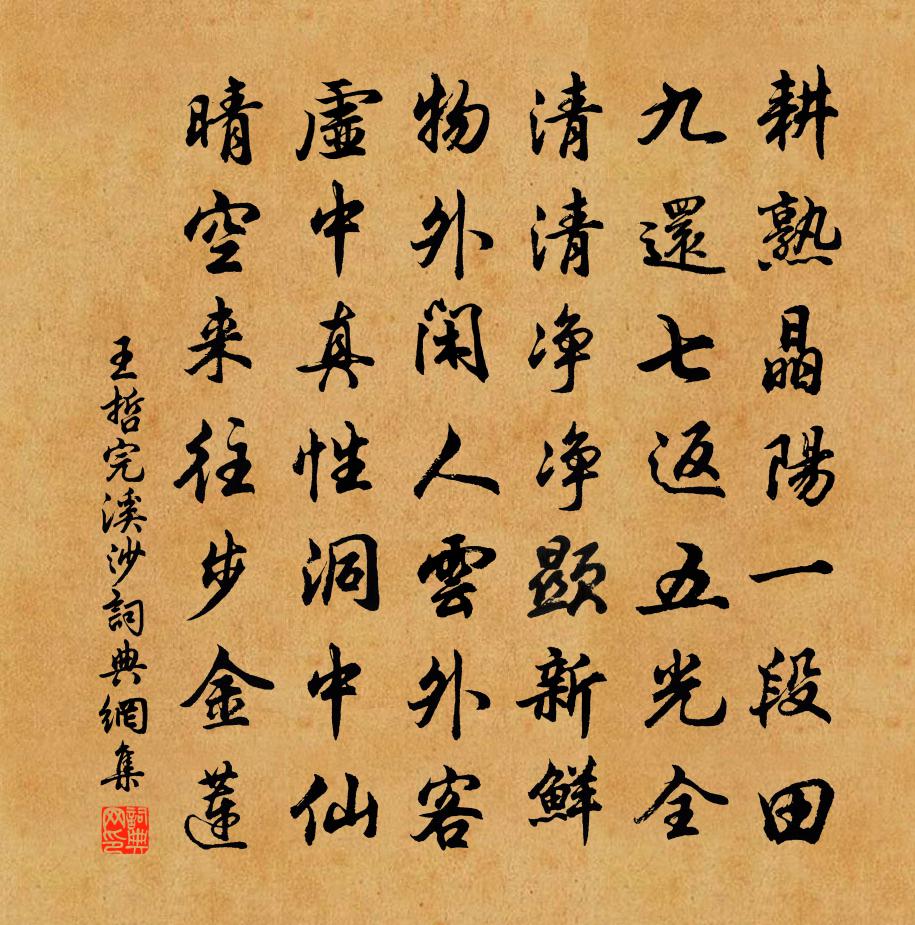 耕熟晶陽一段田
九還七返五光全
清清淨淨顯新鮮
物外閑人雲外客
虛中真性洞中仙
晴空来往步金蓮
王哲完溪沙詞典網集
詞典网印